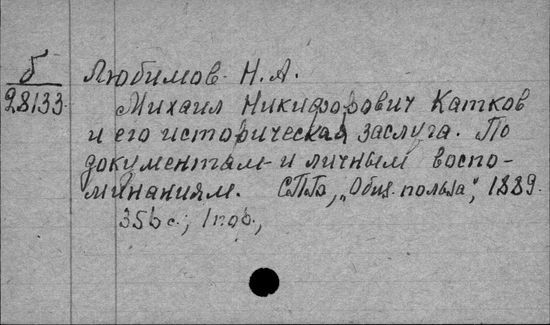 б Любимов Н. А.
28133. Михаил Никифорович Катков
и его историческая заслуга. По
документам и личным воспо-
минаниям. СПб, „Общ. польза", 1889.
356 с.;